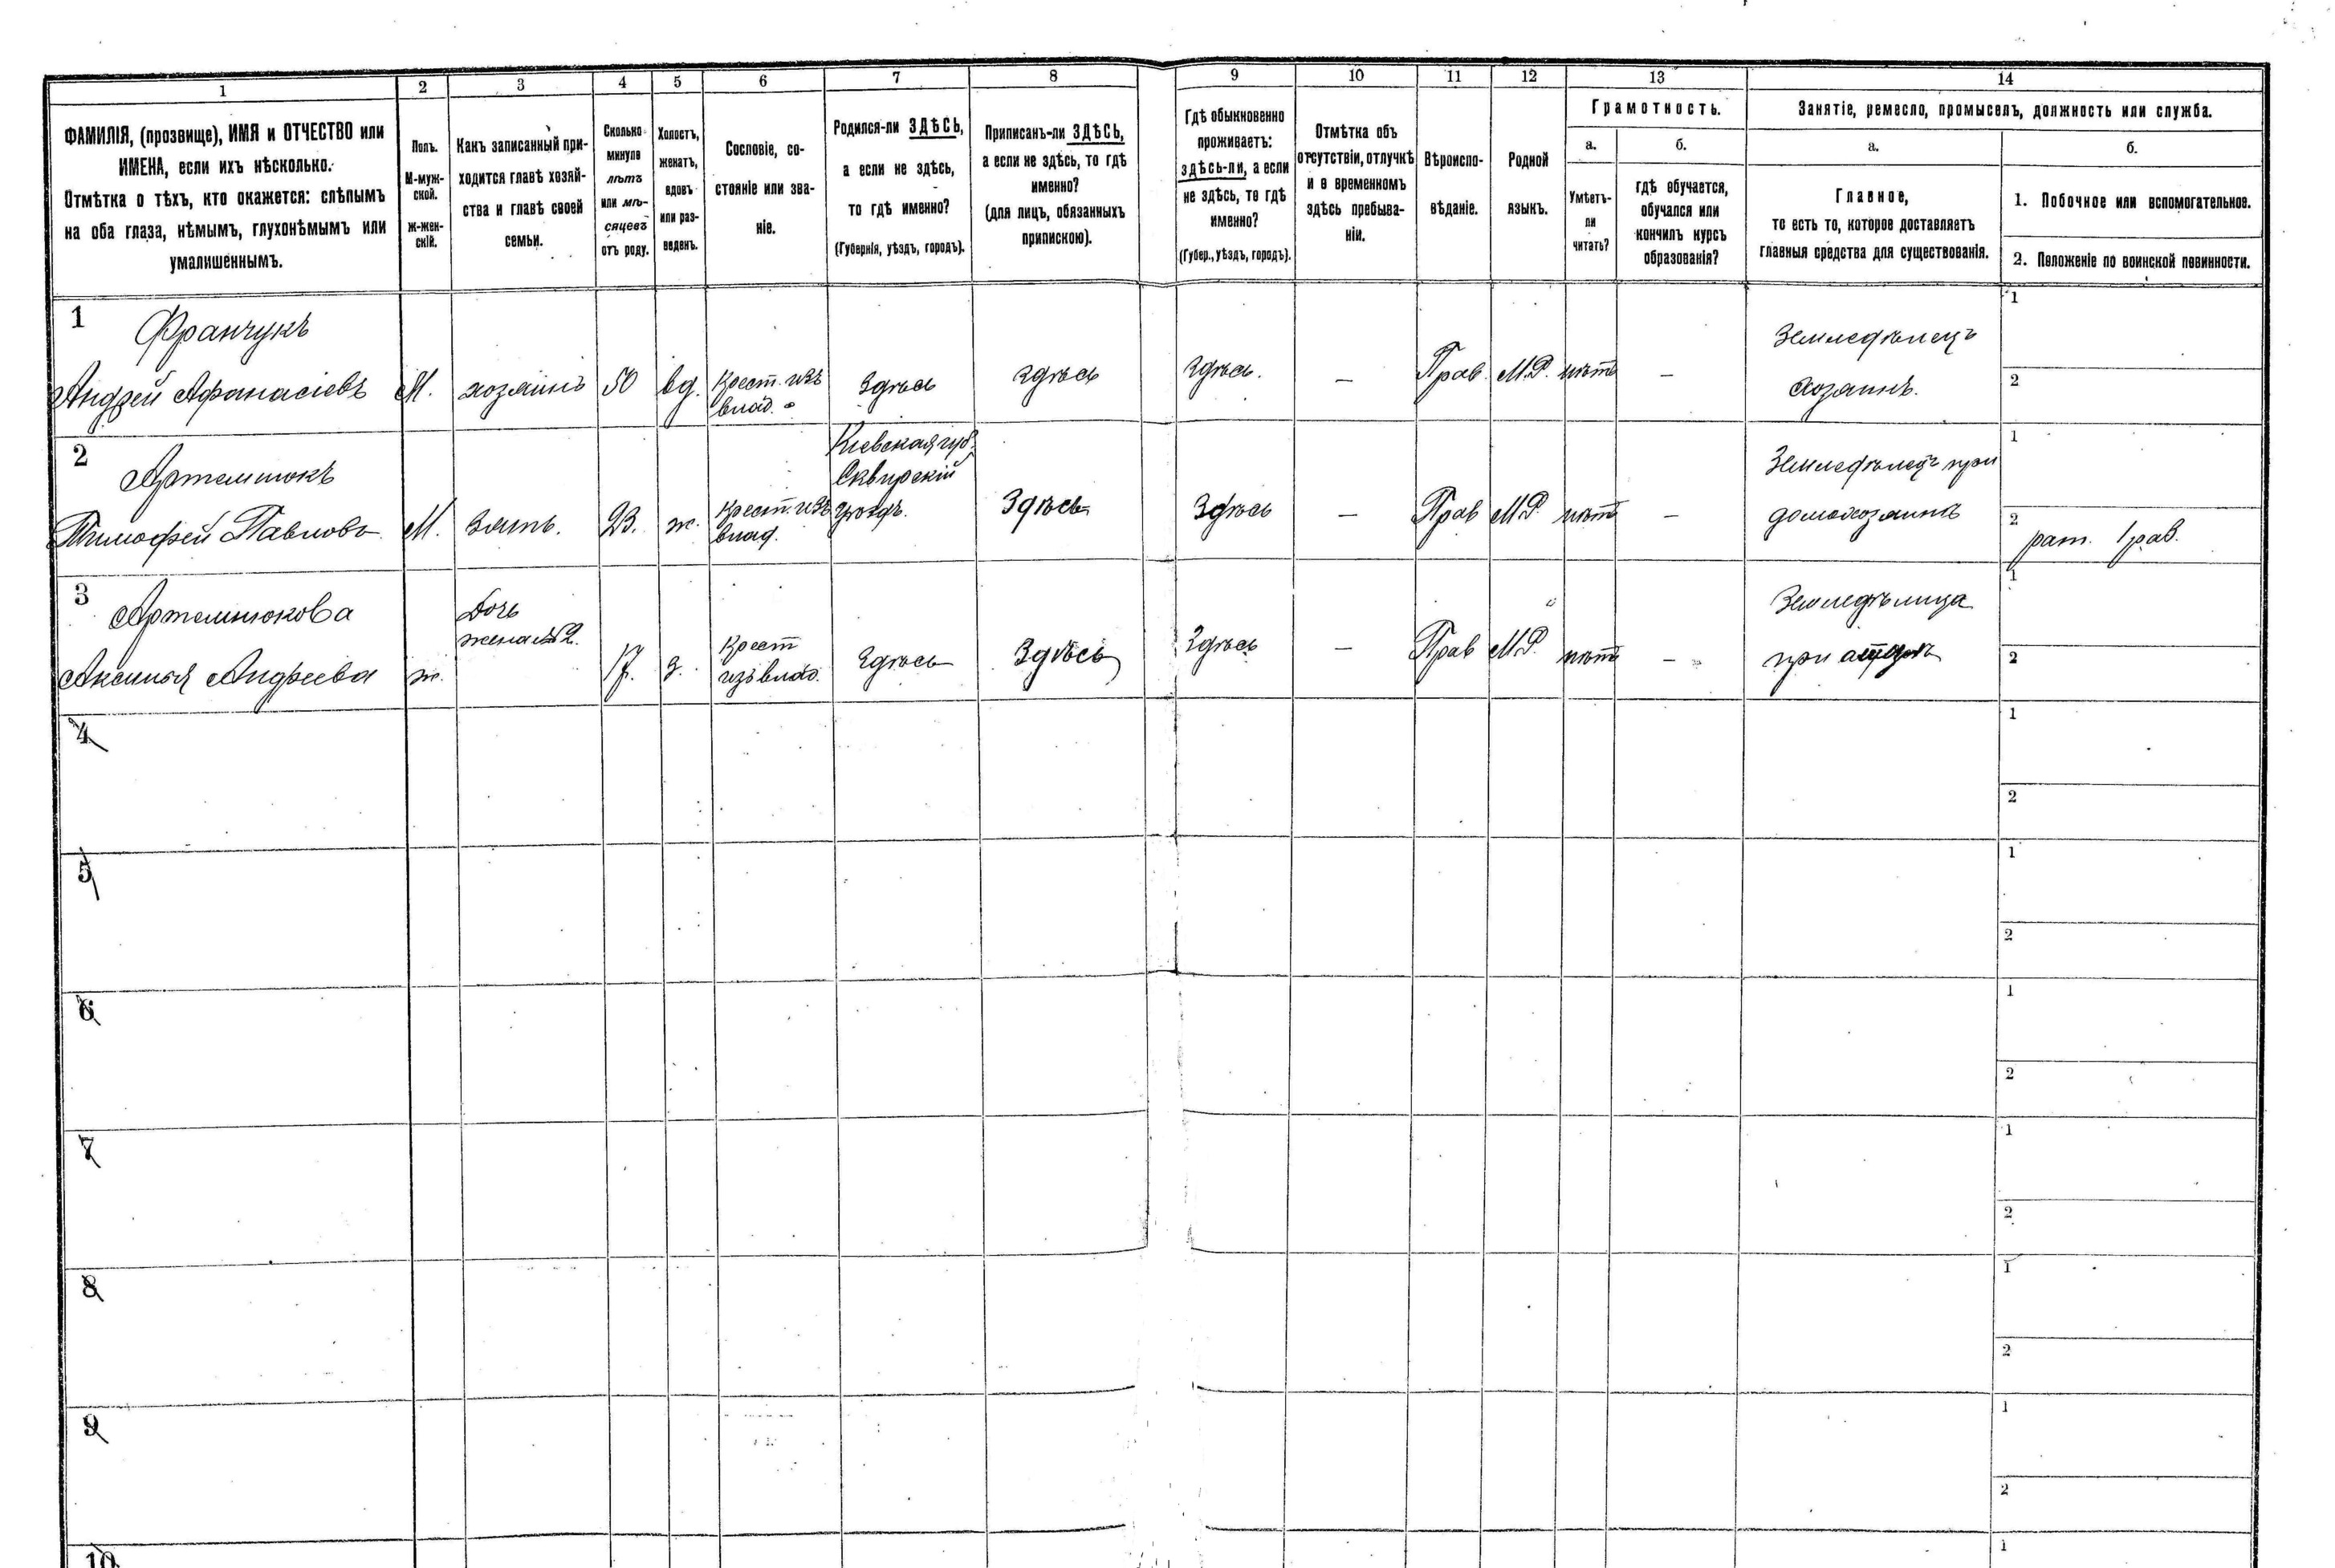 1 2 3 4 5 6 7 8 9 10 11 12 13 14
ФАМИЛІЯ, (прозвище), ИМЯ и ОТЧЕСТВО или
ИМЕНА, если ихъ нѣсколько.
Отмѣтка о тѣхъ, кто окажется: слѣпымъ
на оба глаза, нѣмымъ, глухонѣмымъ или
умалишеннымъ.
Полъ.
М-муж-
ской.
ж-жен-
скій.
Какъ записанный при-
ходится главѣ хозяй-
ства и главѣ своей
семьи.
Сколько
минуло
лѣтъ
или мѣ-
сяцевъ
отъ роду.
Холостъ,
женатъ,
вдовъ
или раз-
веденъ.
Сословіе, со-
стояніе или зва-
ніе.
Родился-ли ЗДѢСЬ,
а если не здѣсь,
то гдѣ именно?
(Губернія, уѣздъ, городъ).
Приписанъ-ли ЗДѢСЬ,
а если не здѣсь, то гдѣ
именно?
(для лицъ, обязанныхъ
припискою).
Гдѣ обыкновенно
проживаетъ:
здѣсь-ли, а если
не здѣсь, то гдѣ
именно?
(Губер., уѣздъ, городъ).
Отмѣтка объ
отсутствіи, отлучкѣ
и о временномъ
здѣсь пребыва-
ніи.
Вѣроиспо-
вѣданіе.
Родной
языкъ.
Грамотность.
а.
Умѣетъ-
ли
читать?
б.
гдѣ обучается,
обучался или
кончилъ курсъ
образованія?
Занятіе, ремесло, промыселъ, должность или служба.
а.
Главное,
то есть то, которое доставляетъ
главныя средства для существованія.
б.
1. Побочное или вспомогательное.
2. Положеніе по воинской повинности.
1
Франчукъ
Андрей Афанасіевъ
М.
хозяинъ
50
вд.
Крест. изъ
влад.
Здѣсь
здѣсь
Здѣсь.
—
Прав.
М.Р.
нѣтъ
—
Земледѣлецъ
хозяинъ.
1
2
2
Артемнюкъ
Тимофей Павловъ
М.
зять.
23.
ж.
Крест. изъ
влад.
Кіевская губ.
Сквирскій
уѣздъ.
Здѣсь
Здѣсь
—
Прав
М.Р.
нѣтъ
—
Земледѣлецъ при
домохозяинѣ
1
2
рат. 1 раз.
3
Артемнюкова
Аксинья Андреева
ж.
Дочь
жена №2.
17.
з.
Крест
изъ влад.
Здѣсь
Здѣсь
Здѣсь
—
Прав
М.Р.
нѣтъ
—
Земледѣлица
при отцѣ
1
2
4
1
2
5
1
2
6
1
2
7
1
2
8
1
2
9
1
2
10
1